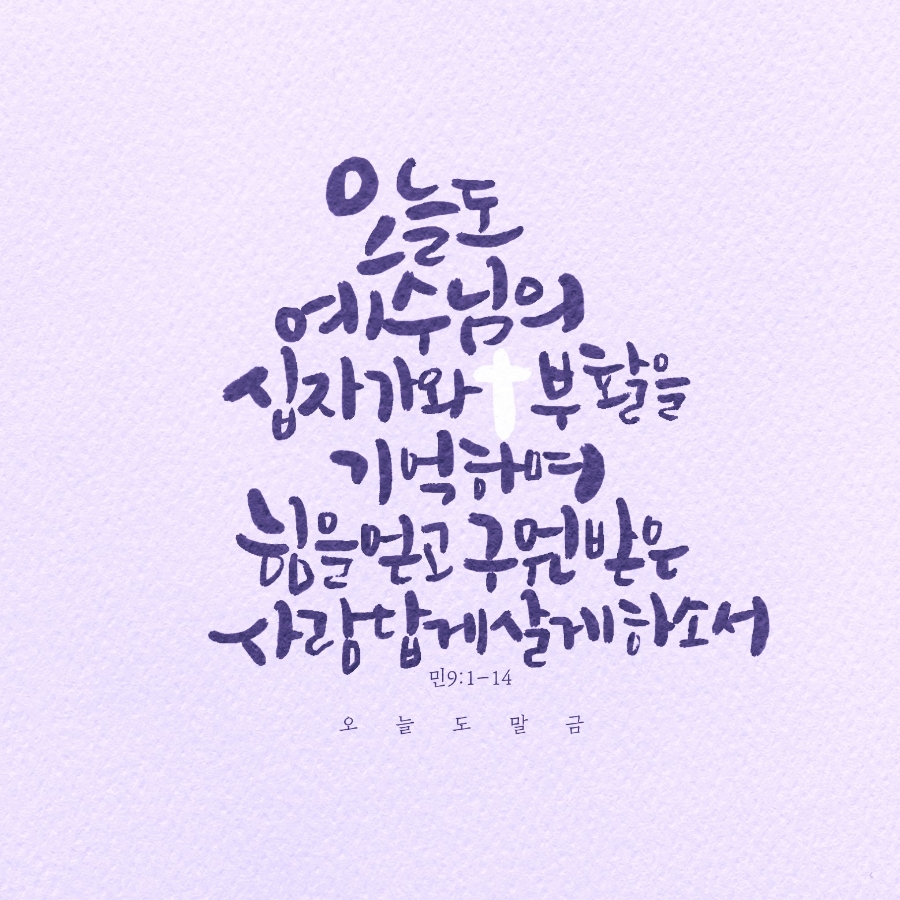 오늘도
예수님의
십자가와 부활을
기억하며
힘을 얻고 구원받은
사람답게 살게하소서
민9:1-14
오 늘 도 말 금